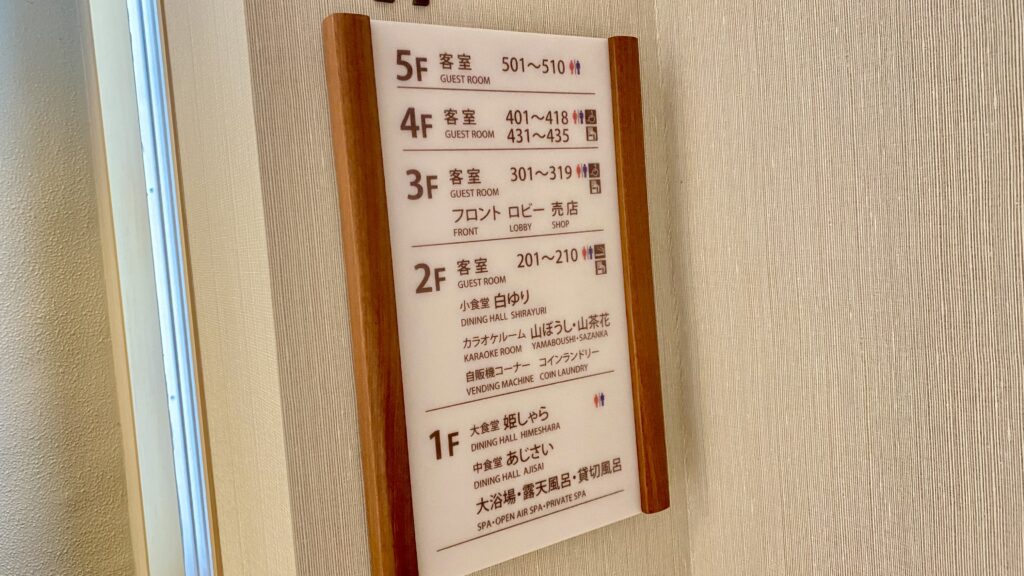 5F 客室 501～510
GUEST ROOM
4F 客室 401～418
GUEST ROOM 431～435
3F 客室 301～319
GUEST ROOM
フロント ロビー 売店
FRONT LOBBY SHOP
2F 客室 201～210
GUEST ROOM
小食堂 白ゆり
DINING HALL SHIRAYURI
カラオケルーム 山ぼうし・山茶花
KARAOKE ROOM YAMABOUSHI・SAZANKA
自販機コーナー コインランドリー
VENDING MACHINE COIN LAUNDRY
1F 大食堂 姫しゃら
DINING HALL HIMESHARA
中食堂 あじさい
DINING HALL AJISAI
大浴場・露天風呂・貸切風呂
SPA・OPEN AIR SPA・PRIVATE SPA